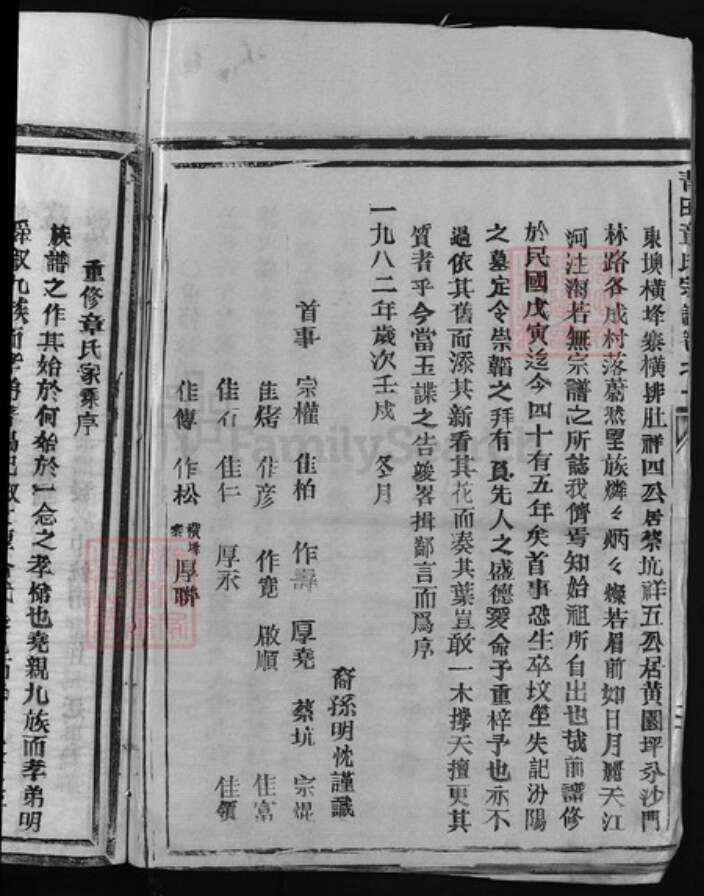 青田章氏宗譜卷之一
東墺橫垟寨橫排肚祥四公居蔡坑祥五公居黄園坪分沙門
林路各成村落蔚然望族燐々炳々燦若眉前如日月麗天江
河注海若無宗譜之所誌我儕焉知始祖所自出也哉前譜修
於民國戊寅迄今四十有五年矣首事恐生卒坟塋失記汾陽
之墓定令崇韜之拜有負先人之盛德爰命予重梓予也亦不
過依其舊而添其新看其花而奏其葉豈敢一木撐天擅更其
質者乎今當玉諜之告竣畧揖鄙言而爲序
一九八二年歲次壬戌 冬月
裔孫明忱謹識
首事 宗權 佳柏 作壽 厚堯 蔡坑 宗焜
佳烤 作彦 作寬 啟順 佳富
佳石 佳仁 厚永 佳領
佳傳 作松 橫垟寨 厚聯
重修章氏家乘序
族譜之作其始於何始於一念之孝偹也堯親九族而孝弟明
舜叙九族而孝弟
FamilySearch